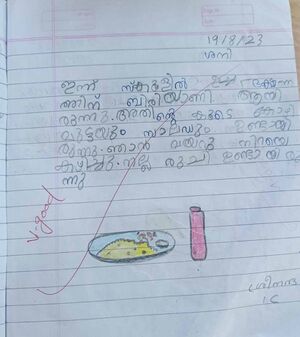 19/8/23
ശനി
ഇന്ന് സ്കൂളിൽ ഭക്ഷണ
ത്തിന് ബിരിയാണി ആയി
രുന്നു. അതിന്റെ കൂടെ കോഴി
മുട്ടയും സാലഡും ഉണ്ടായി
രുന്നു. ഞാൻ വയറു നിറയെ
കഴിച്ചു. നല്ല രുചി ഉണ്ടായിരു
ന്നു
V.good
ശ്രീനന്ദ
1 C